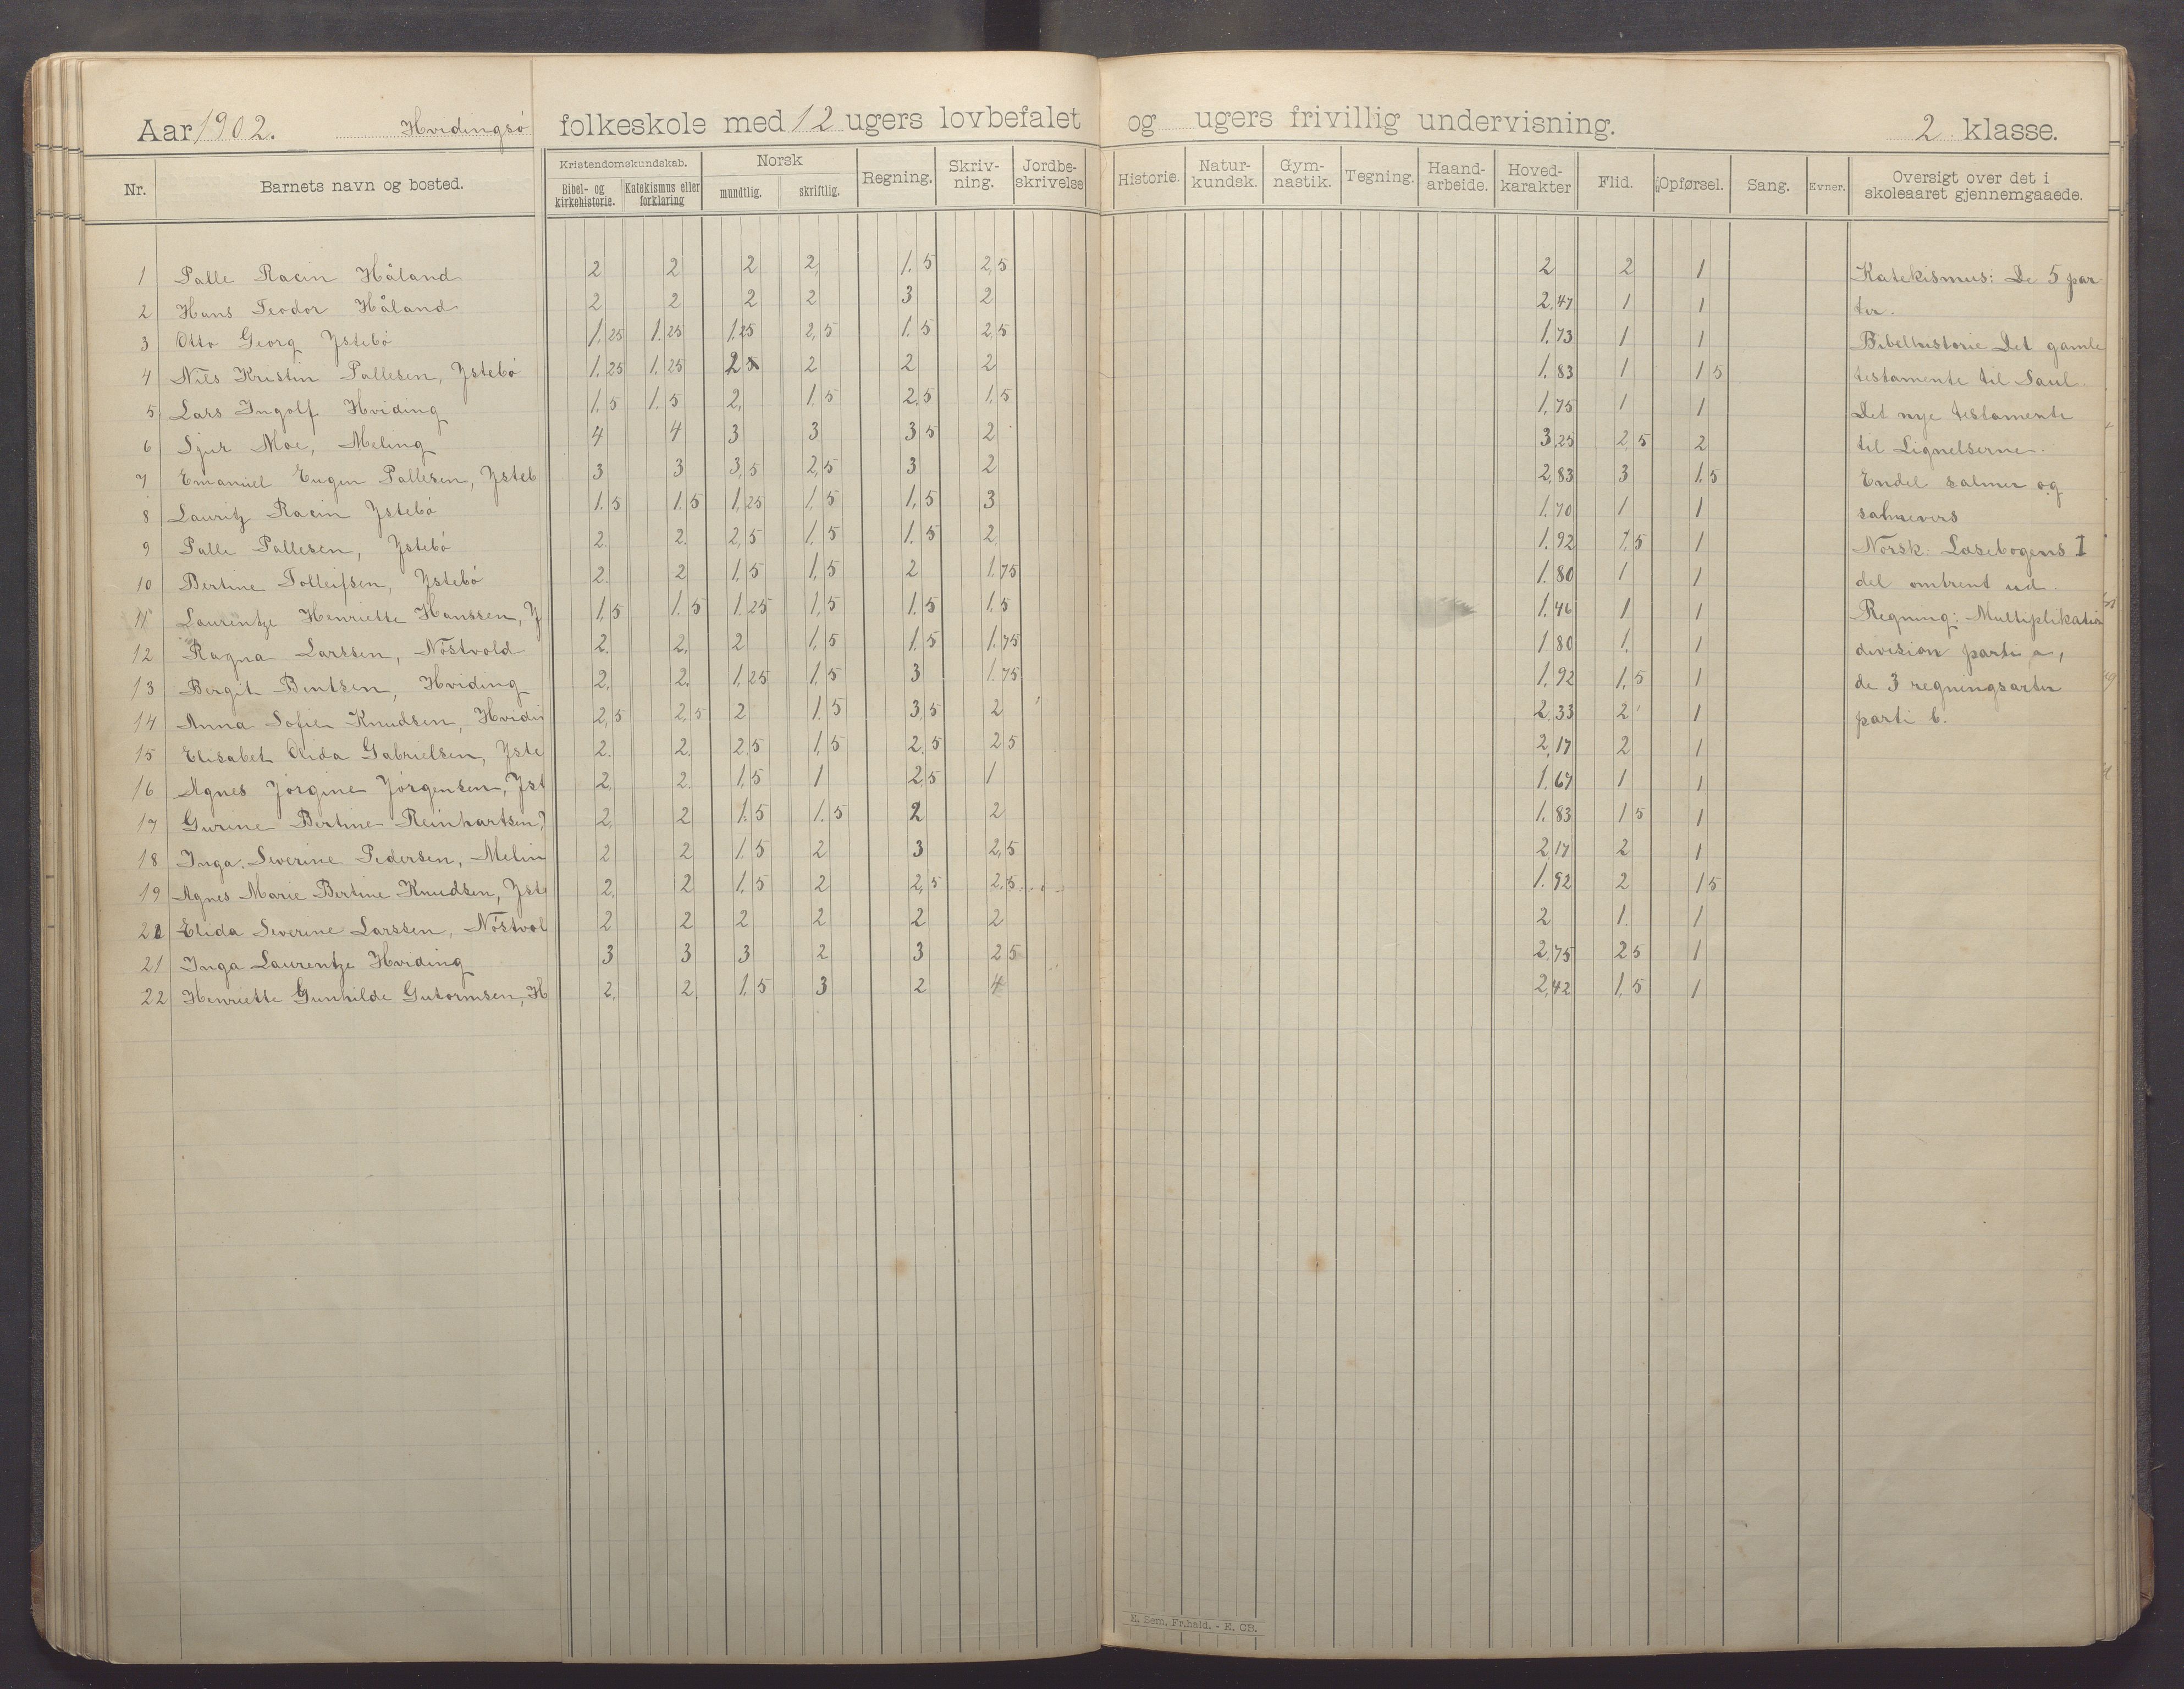 Aar 1902. Hvidingsö folkeskole med 12 ugers lovbefalet og ugers frivillig undervisning. 2 klasse.
Nr. Barnets navn og bosted. Kristendomskundskab. Bibel- og kirkehistorie. Katekismus eller forklaring Norsk mundtlig. skriftlig. Regning. Skriv-ning. Jordbe-skrivelse Historie. Natur-kundsk. Gym-nastik. Tegning. Haand-arbeide. Hoved-karakter Flid. Opførsel. Sang. Evner. Oversigt over det i skoleaaret gjennemgaaede.
1 Palle Racin Håland 2 2 2 2, 1.5 2,5 2 2 1 Katekismus: De 5 par
2 Hans Teodor Håland 2 2 2 2 3 2 2,47 1 1 ter.
3 Otto Georg Ystebö 1,25 1,25 1,25 2,5 1.5 2,5 1,73 1 1 Bibelhistorie Det gamle
4 Nils Kristin Pallesen, Ystebö 1,25 1,25 2 2 2 2 1,83 1 1 5 testamente til Saul.
5 Lars Ingolf Hviding 1,5 1,5 2, 1,5 2,5 1,5 1,75 1 1 Det nye testamente
6 Sjur Moe, Meling 4 4 3 3 3 5 2 3,25 2,5 2 til Lignelserne.
7 Emanuel Eugen Pallesen, Ysteb 3 3 3,5 2,5 3 2 2,83 3 1.5 Endel salmer og
8 Lauritz Racin Ystebö 1.5 1.5 1,25 1,5 1,5 3 1.70 1 1 salmevers
9 Palle Pallesen, Ystebö 2. 2. 2,5 1.5 1.5 2, 1.92 1,5 1 Norsk: Læsebogens I
10 Bertine Tolleifsen, Ystebö 2. 2 1,5 1,5 2 1.75 1.80 1 1 del omtrent ud.
11 Laurentze Henriette Hanssen, Y 1,5 1.5 1.25 1,5 1.5 1.5 1.46 1 1 Regning: Multiplikation
12 Ragna Larssen, Nöstvold 2. 2. 2 1,5 1.5 1.75 1 80 1. 1 division parti a,
13 Bergit Bentsen, Hviding 2. 2. 1,25 1,5 3 1.75 1.92 1,5 1 de 3 regningsarter
14 Anna Sofie Knudsen, Hvidin 2,5 2,5 2 1.5 3,5 2 2,33 2 1 parti b.
15 Elisabet Olida Gabrielsen, Yste 2. 2. 2,5 1,5 2,5 2 5 2,17 2 1
16 Agnes Jörgine Jörgensen, Yst 2. 2. 1,5 1 2,5 1 1.67 1 1
17 Gurine Bertine Reinhartsen, Y 2. 2 1.5 1.5 2 2 1.83 1 5 1
18 Inga Severine Pedersen, Melin 2 2 1.5 2 3 2,5 2,17 2 1
19 Agnes Marie Bertine Knudsen, Yste 2. 2 1,5 2 2,5 2.5 1.92 2 1 5
20 Elida Severine Larssen, Nöstvol 2 2 2 2 2 2 2 1. 1
21 Inga Laurentze Hviding 3 3 3 2 3 2 5 2,75 2 5 1
22 Henriette Gunhilde Gutormsen, H 2. 2 1.5 3 2 4 2,42 1.5 1
E. Sem, Fr.hald. - E. CB.